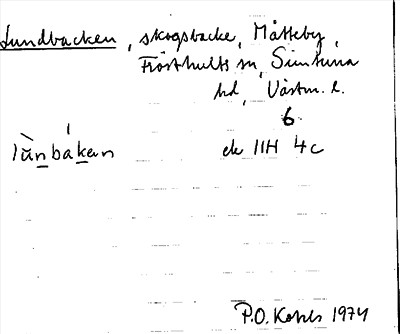 Lundbacken, skogsbacke, Måtteby,
Frösthults sn, Simtuna
hd, Västm. l.
6
lùnbákan
ek 11H 4c
P.O. Kohls 1974